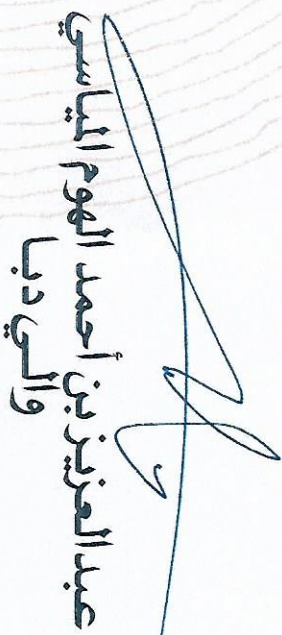 عبدالعزيز بن أحمد الهوم المياسي
والي دبا